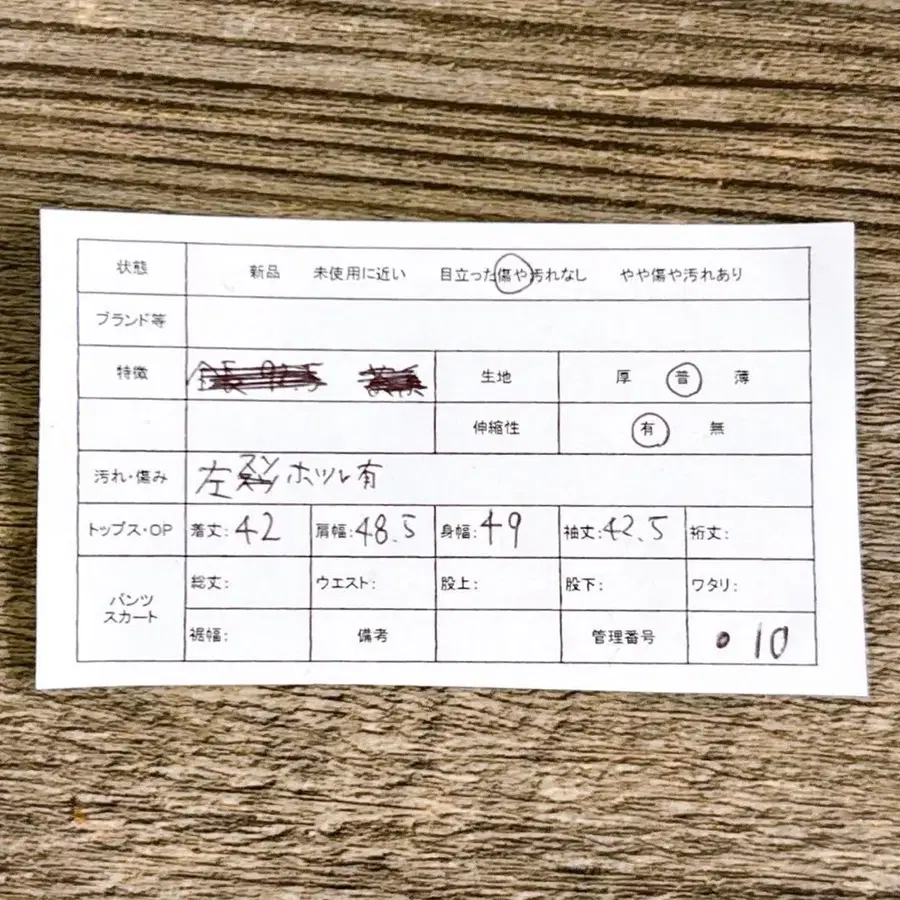 状態 新品 未使用に近い 目立った傷や汚れなし やや傷や汚れあり
ブランド等
特徴 生地 厚 普 薄
伸縮性 有 無
汚れ・傷み 左 ホツレ有
トップス・OP 着丈:42 肩幅:48.5 身幅:49 袖丈:42.5 裄丈:
パンツ 総丈: ウエスト: 股上: 股下: ワタリ:
スカート 裾幅: 備考 管理番号 •10